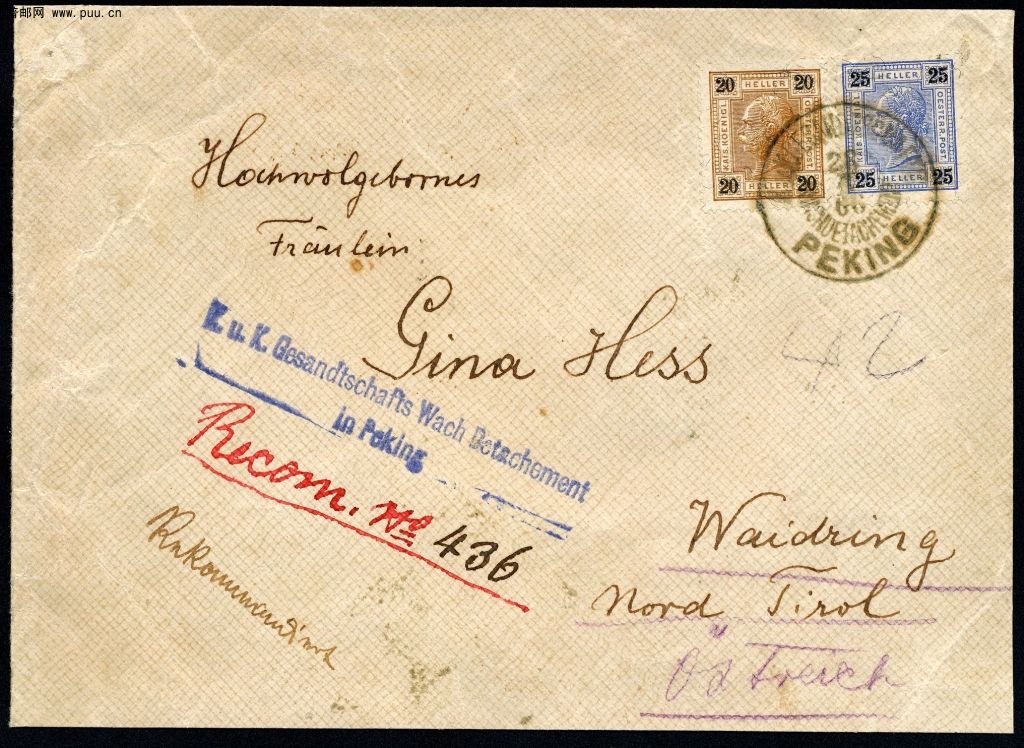 音邮网 www.puu.cn
20 HELLER 20
KAIS. KOENIGL.
OESTERR. POST
20 HELLER 20
25 HELLER 25
KAIS. KOENIGL.
OESTERR. POST.
25 HELLER 25
PEKING
Hochwolgebornes
Fräulein
Gina Hess
42
K. u. K. Gesandtschafts Wach Detachement
in Peking
Recom. No 436
Rekommandirt
Waidring
Nord Tirol
Östreich